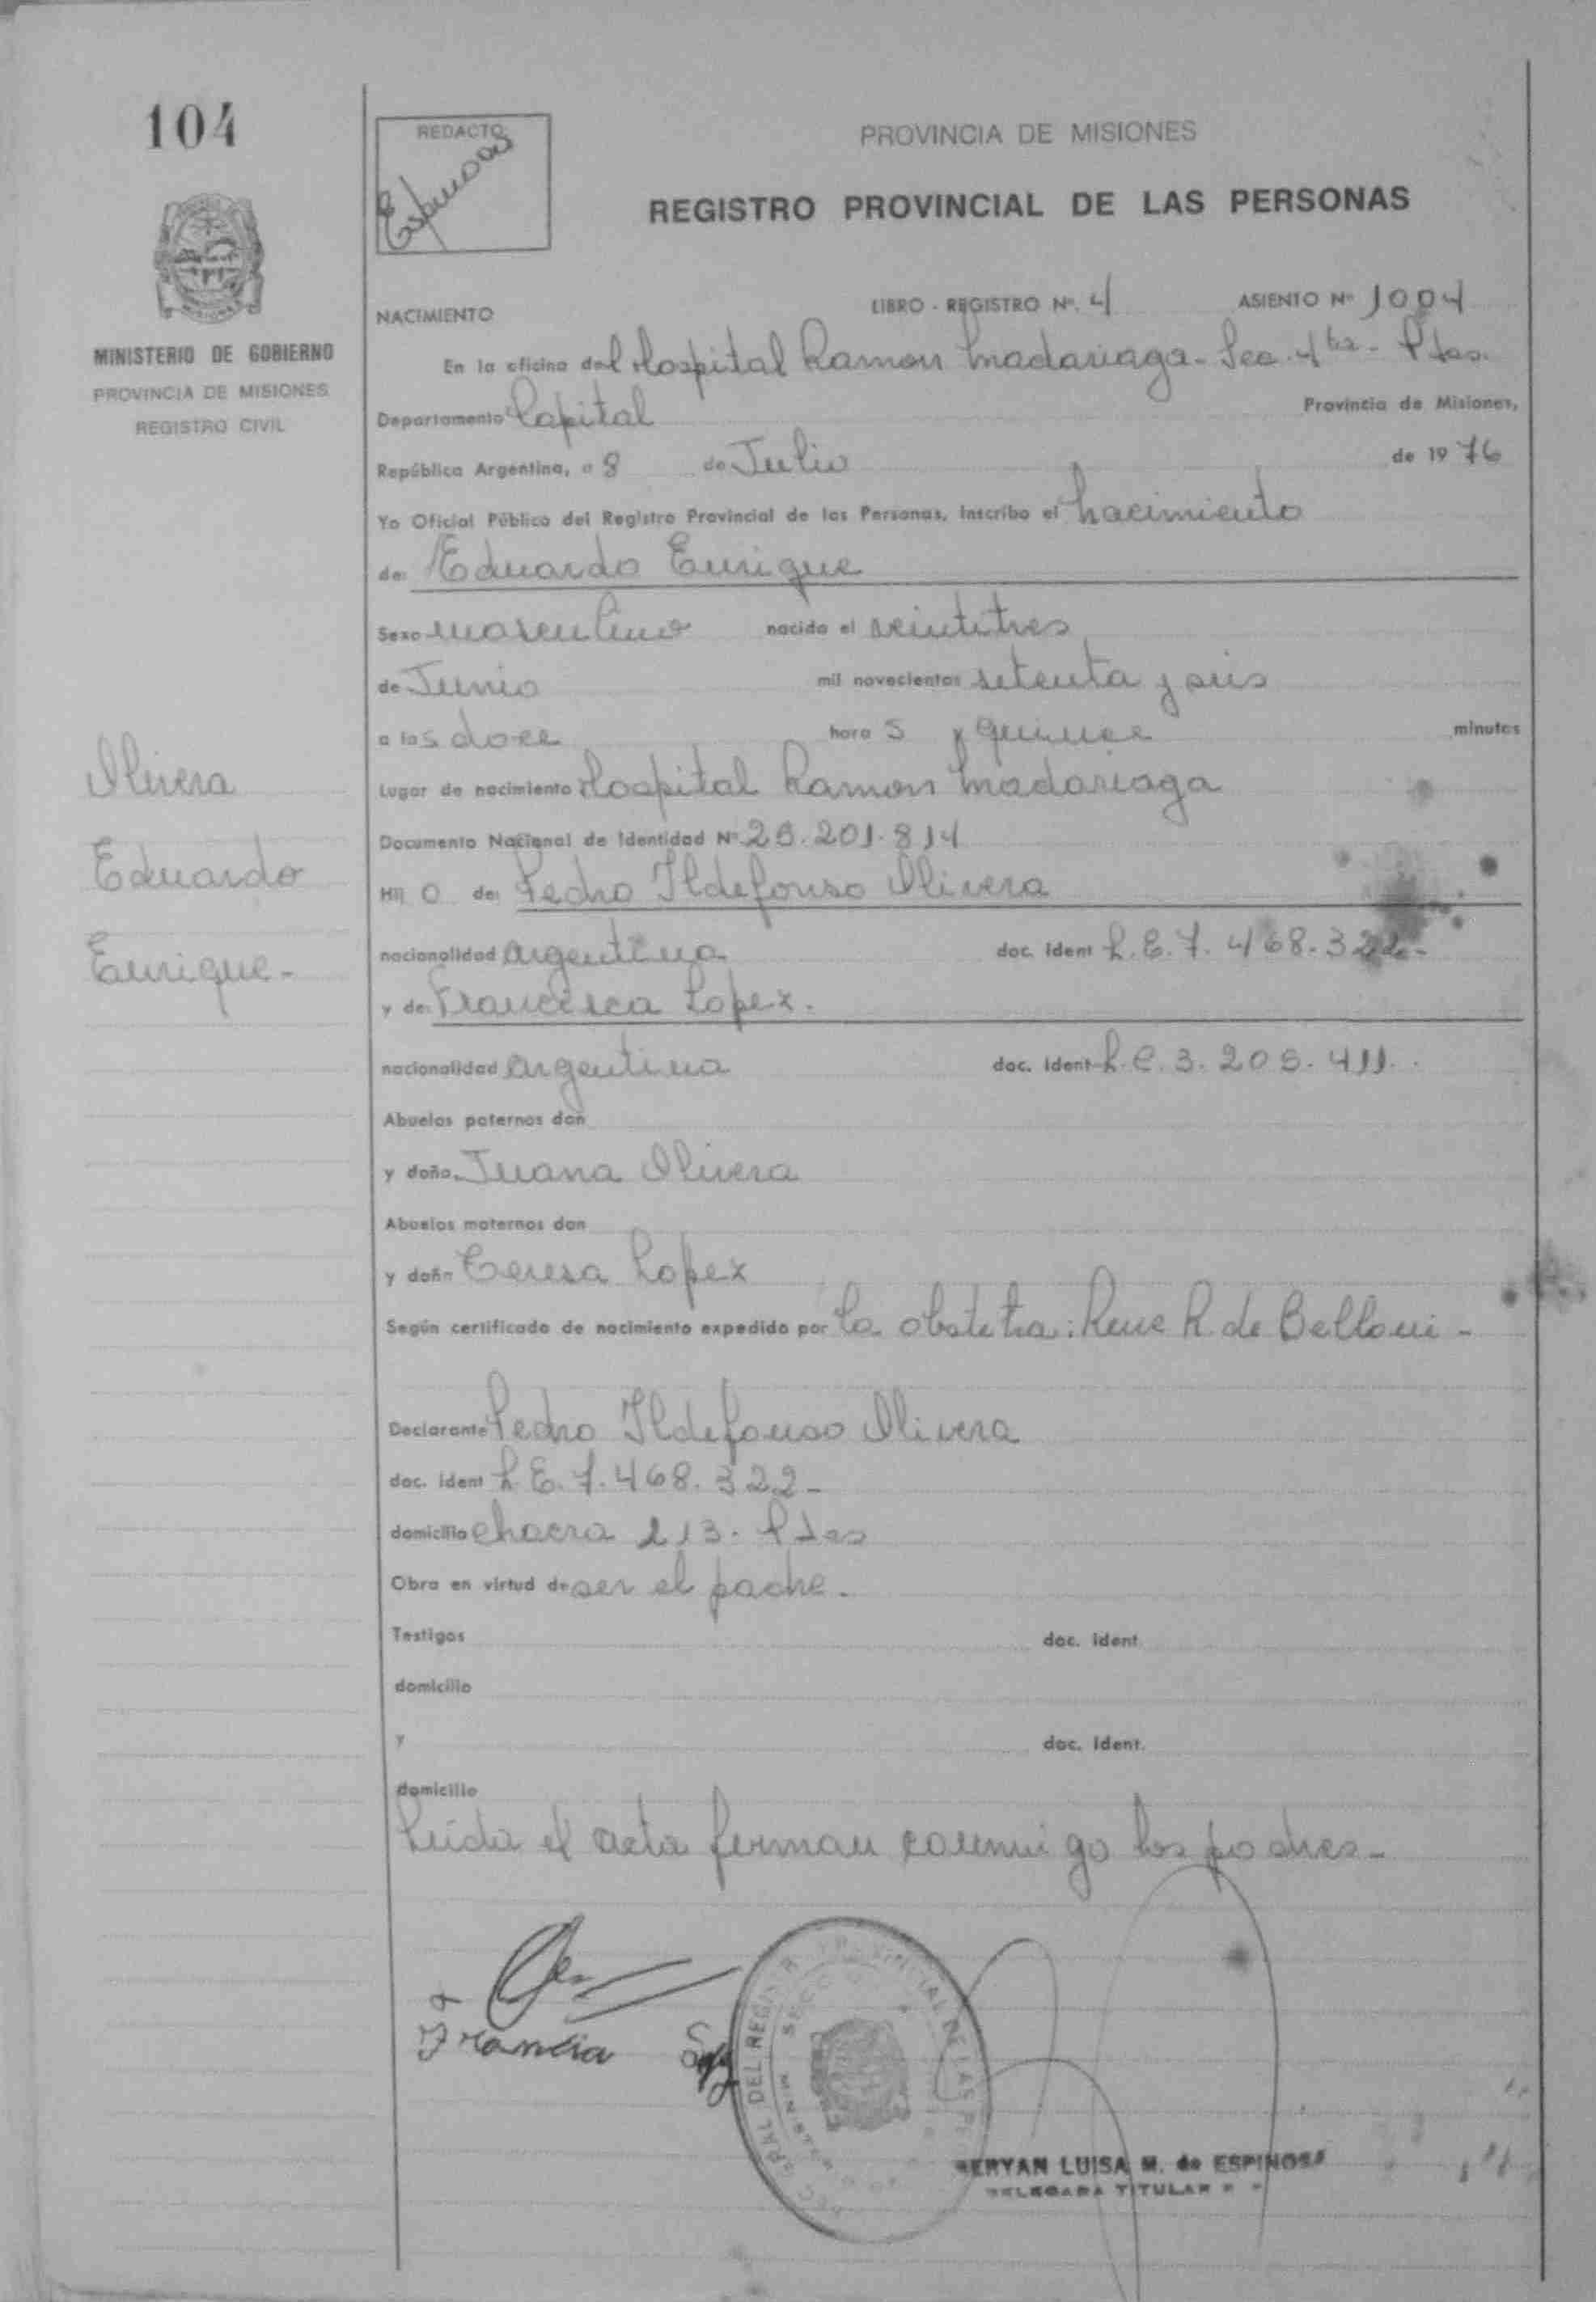 104
REDACTO
Espinosa
PROVINCIA DE MISIONES
REGISTRO PROVINCIAL DE LAS PERSONAS
MINISTERIO DE GOBIERNO
PROVINCIA DE MISIONES
REGISTRO CIVIL
NACIMIENTO LIBRO - REGISTRO Nº. 4 ASIENTO Nº 1004
En la oficina del Hospital Ramon Madariaga - Sec. 4ta - Pdas.
Departamento Capital Provincia de Misiones,
República Argentina, a 8 de Julio de 1976
Yo Oficial Público del Registro Provincial de las Personas, inscribo el nacimiento
de: Eduardo Enrique
Sexo masculino nacido el veintitres
de Junio mil novecientos setenta y seis
a las doce horas y quince minutos
Lugar de nacimiento Hospital Ramon Madariaga
Documento Nacional de Identidad Nº 25.201.814
Hijo de: Pedro Ildefonso Olivera
nacionalidad argentina doc. ident L.E. 7.468.322-
y de: Francisca Lopez.
nacionalidad argentina doc. ident L.C. 3.205.411.
Abuelos paternos don
y doña Juana Olivera
Abuelos maternos don
y doña Teresa Lopez
Según certificado de nacimiento expedido por la obstetra: Rene R. de Belloni -
Declarante Pedro Ildefonso Olivera
doc. ident L.E. 7.468.322-
domicilio chacra 213. Pdas
Obra en virtud de ser el padre.
Testigos doc. ident
domicilio
y doc. ident.
domicilio
Leida el acta firman conmigo los padres-
Olivera
Eduardo
Enrique-
DEL REGISTRO PROVINCIAL DE LAS
LUISA M. de ESPINOSA
DELEGADA TITULAR